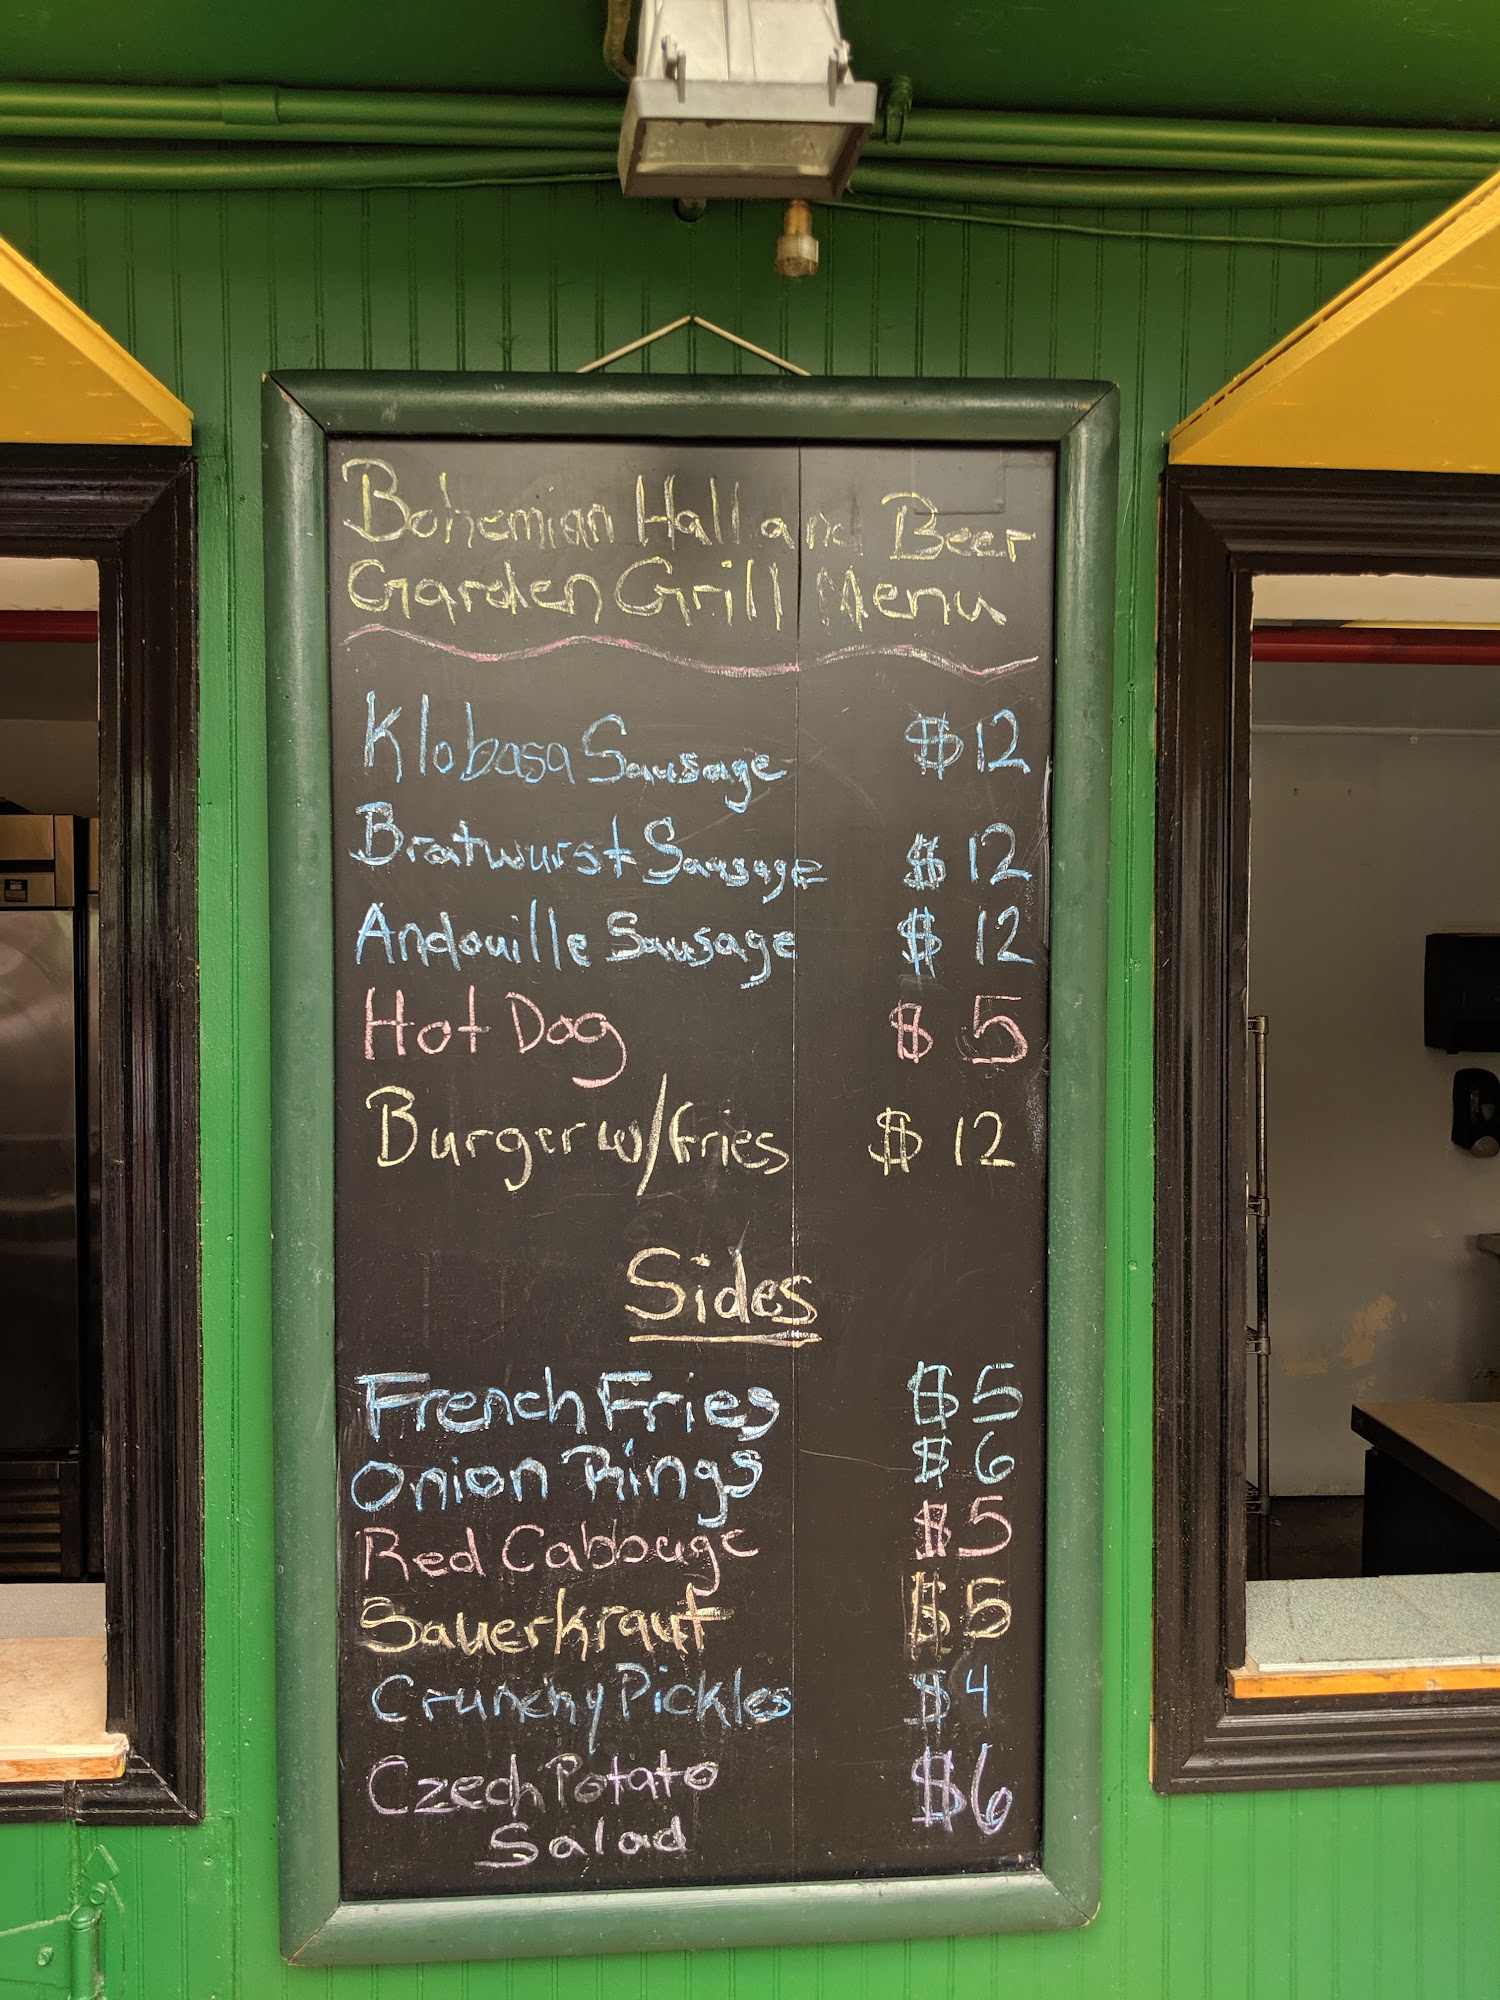 Bohemian Hall and Beer
Garden Grill Menu
Klobasa Sausage $12
Bratwurst Sausage $12
Andouille Sausage $12
Hot Dog $5
Burger w/Fries $12
Sides
French Fries $5
Onion Rings $6
Red Cabbage $5
Sauerkraut $5
Crunchy Pickles $4
Czech Potato $6
Salad